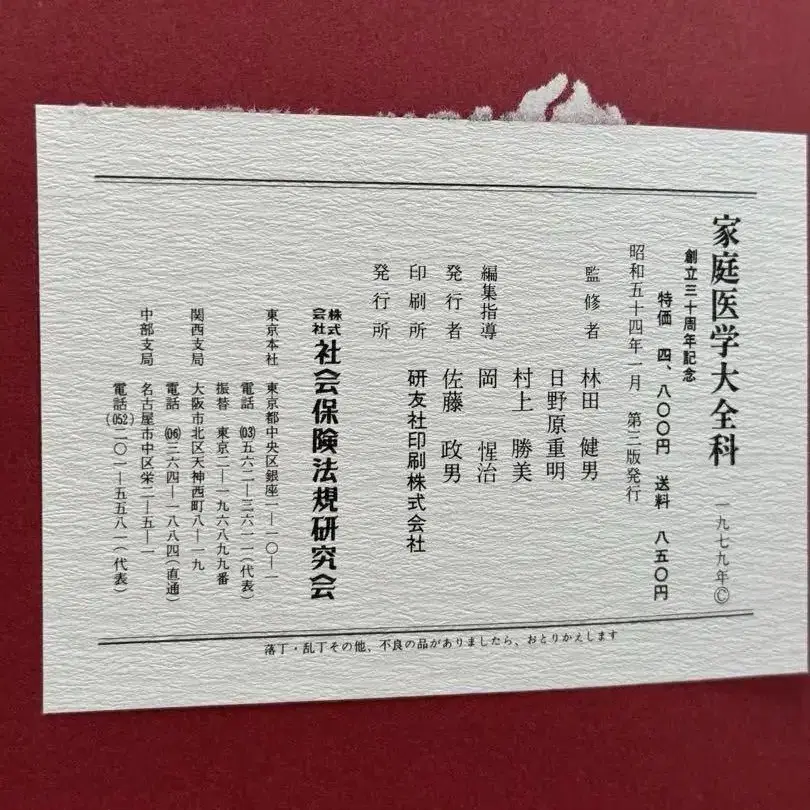 家庭医学大全科 一九七九年Ⓒ
創立三十周年記念
特価 四、八〇〇円 送料 八五〇円
昭和五十四年一月 第三版発行
監修者 林田 健男
日野原重明
村上 勝美
編集指導 岡 惺治
発行者 佐藤 政男
印刷所 研友社印刷株式会社
発行所
株式会社 社会保険法規研究会
東京本社 東京都中央区銀座二―一〇―一
電話 (03)五六二―三六一一(代表)
振替 東京二―一九六八九九番
関西支局 大阪市北区天神西町八―一九
電話 (06)三六四―一八八四(直通)
中部支局 名古屋市中区栄二―五―一
電話(052)二〇一―五五八一(代表)
落丁・乱丁その他、不良の品がありましたら、おとりかえします